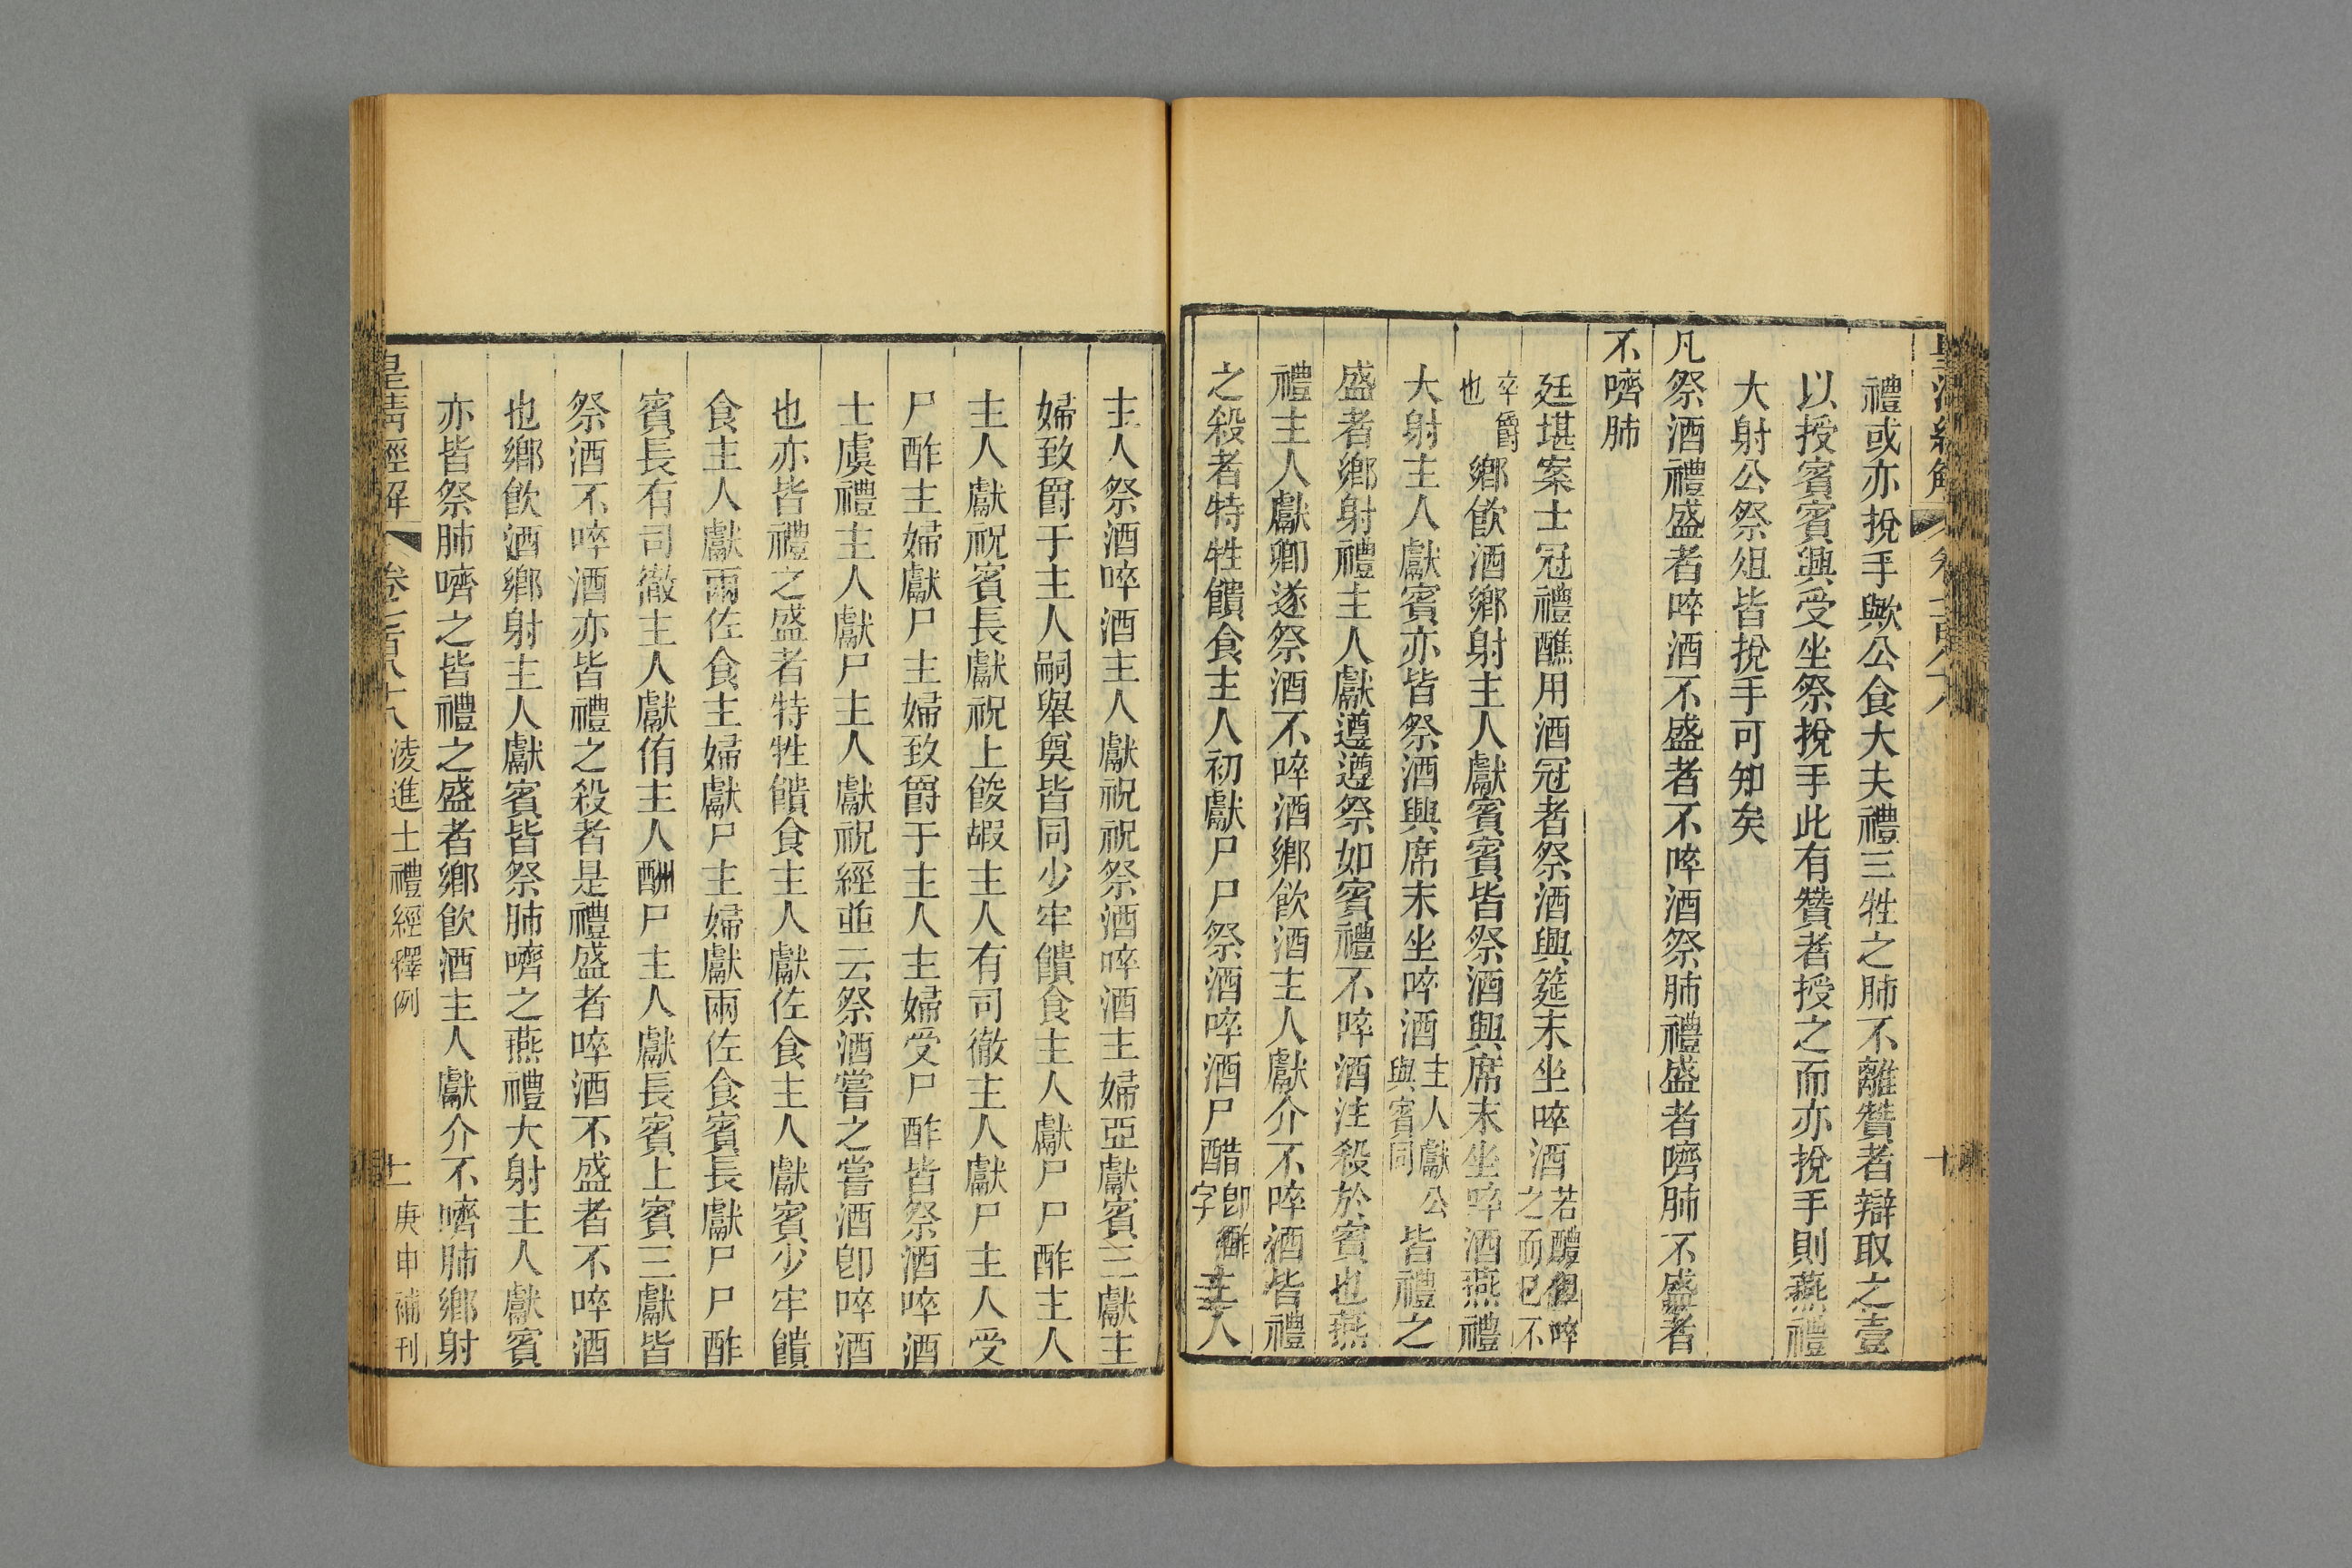 禮或亦捝手歟公食大夫禮三牲之肺不離贊者辯取之壹
以授賓賓興受坐祭捝手此有贊者授之而亦捝手則燕禮
大射公祭俎皆捝手可知矣
凡祭酒禮盛者啐酒不盛者不啐酒祭肺禮盛者嚌肺不盛者
不嚌肺
廷堪案士冠禮醮用酒冠者祭酒興筵末坐啐酒若醴但啐之而已不
卒爵也鄉飲酒鄉射主人獻賓賓皆祭酒興席末坐啐酒燕禮
大射主人獻賓亦皆祭酒興席末坐啐酒主人獻公與賓同皆禮之
盛者鄉射禮主人獻遵遵祭如賓禮不啐酒注殺於賓也燕
禮主人獻卿遂祭酒不啐酒鄉飲酒主人獻介不啐酒皆禮
之殺者特牲饋食主人初獻尸尸祭酒啐酒尸醋卽酢字主人
主人祭酒啐酒主人獻祝祝祭酒啐酒主婦亞獻賓三獻主
婦致爵于主人嗣舉奠皆同少牢饋食主人獻尸尸酢主人
主人獻祝賓長獻祝上餕嘏主人有司徹主人獻尸主人受
尸酢主婦獻尸主婦致爵于主人主婦受尸酢皆祭酒啐酒
士虞禮主人獻尸主人獻祝經並云祭酒嘗之嘗酒卽啐酒
也亦皆禮之盛者特牲饋食主人獻佐食主人獻賓少牢饋
食主人獻兩佐食主婦獻尸主婦獻兩佐食賓長獻尸尸酢
賓長有司徹主人獻侑主人酬尸主人獻長賓上賓三獻皆
祭酒不啐酒亦皆禮之殺者是禮盛者啐酒不盛者不啐酒
也鄉飲酒鄉射主人獻賓皆祭肺嚌之燕禮大射主人獻賓
亦皆祭肺嚌之皆禮之盛者鄉飲酒主人獻介不嚌肺鄉射
皇清經解 卷七百八十八 淩進士禮經釋例 十一 庚申補刊